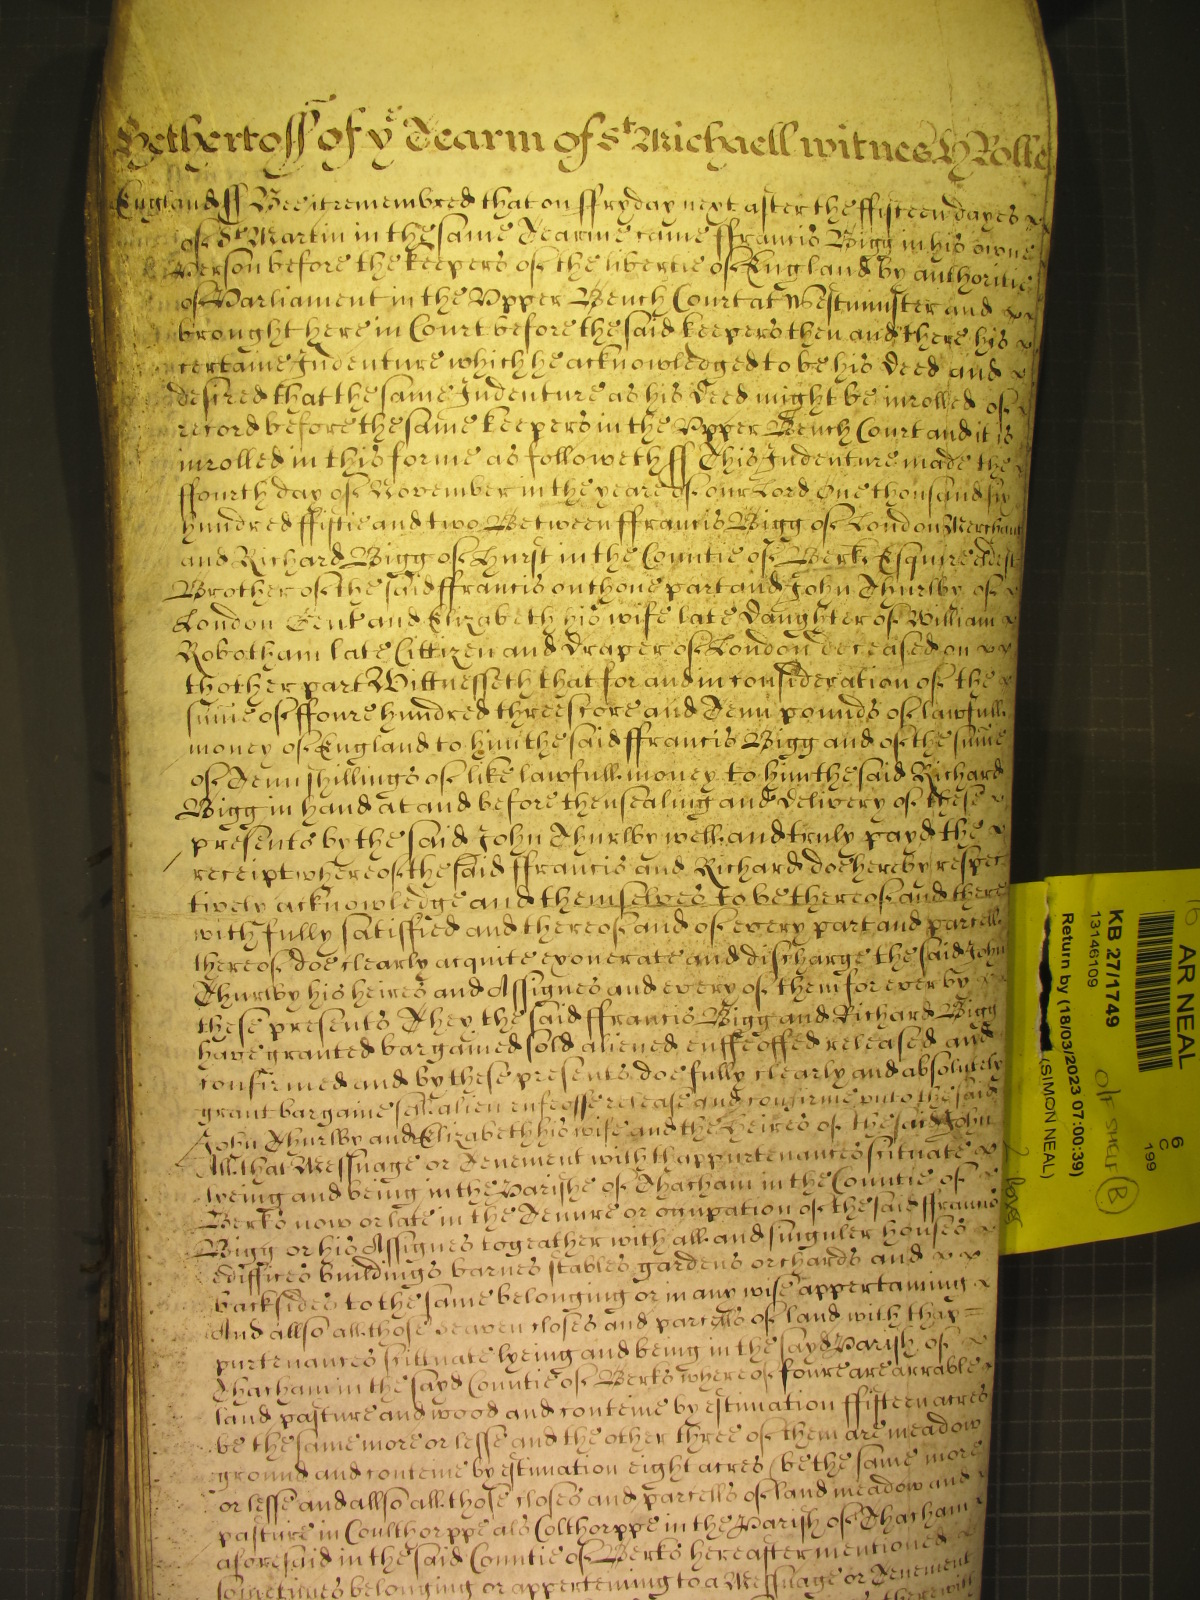 Hetherto ff of ye Tearm of St Michaell witnes H Rolle
England ff Bee it remembred that on ffryday next after the ffifteen dayes
of St Martin in the same Tearme came ffrancis Bigg in his owne
person before the keepers of the libertie of England by authoritie
of Parliament in the Upper Bench Court at Westminster and
brought here in Court before the said keepers then and there his
certaine Indenture which he acknowledged to be his deed and
desired that the same Indenture as his deed might be inrolled of
record before the same keepers in the Upper Bench Court and it is
inrolled in this forme as followeth ff This Indenture made the
ffourth day of November in the yeare of our Lord One thousand six
hundred ffiftie and two Betweene ffrancis Bigg of London Merchant
and Richard Bigg of Hurst in the Countie of Berk Esquire eldest
Brother of the said ffrancis on thone part and John Thurlby of
London Gent and Elizabeth his wife late daughter of William
Robotham late Cittizen and draper of London deceased on
thother part Wittnesseth that for and in consideration of the
sume of ffoure hundred threescore and Tenn pounds of lawfull
money of England to him the said ffrancis Bigg and of the sume
of Tenn shillings of like lawfull money to him the said Richard
Bigg in hand at and before thensealing and delivery of these
presents by the said John Thurlby well and truly payd the
receipt whereof the said ffrancis and Richard doe hereby respec
tively acknowledge and themselves to be thereof and there
with fully satisfied and thereof and of every part and parcell
thereof doe clearly acquite exonerate and discharge the said John
Thurlby his heires and Assignes and every of them for ever by
these presents They the said ffrancis Bigg and Richard Bigg
have granted bargained sold aliened enffeoffed released and
confirmed and by these presents doe fully clearly and absolutely
grant bargaine sell alien enfeoffe release and confirme unto the said
John Thurlby and Elizabeth his wife and the heires of the said John
All that Messuage or Tenement with thappurtenances scituate
lyeing and being in the Parishe of Thacham in the Countie of
Berks now or late in the Tenure or occupation of the said ffrancis
Bigg or his Assignes togeather with all and singuler houses
ediffices buildings barnes stables gardens orchards and
backsides to the same belonging or in any wise appertaining
And allso all those seaven closes and parcells of land with thap=
purtenances scittuate lyeing and being in the sayd Parish of
Thacham in the sayd Countie of Berks whereof foure are arrable
land pasture and wood and conteine by estimation ffifteen acres
be the same more or lesse and the other three of them are meadow
ground and conteine by estimation eight acres (be the same more
or lesse and allso all those closes and parcells of land meadow and
pasture in Coulthorppe als Colthorppe in the Parish of Thacham
aforesaid in the said Countie of Berks hereafter mentioned
sometimes belonging or appertening to a Messuage or Tenement
therewith
AR NEAL
6
C
199
KB 27/1749
13146109
Return by (18/03/2023 07:00:39)
(SIMON NEAL)
O/F SHELF B